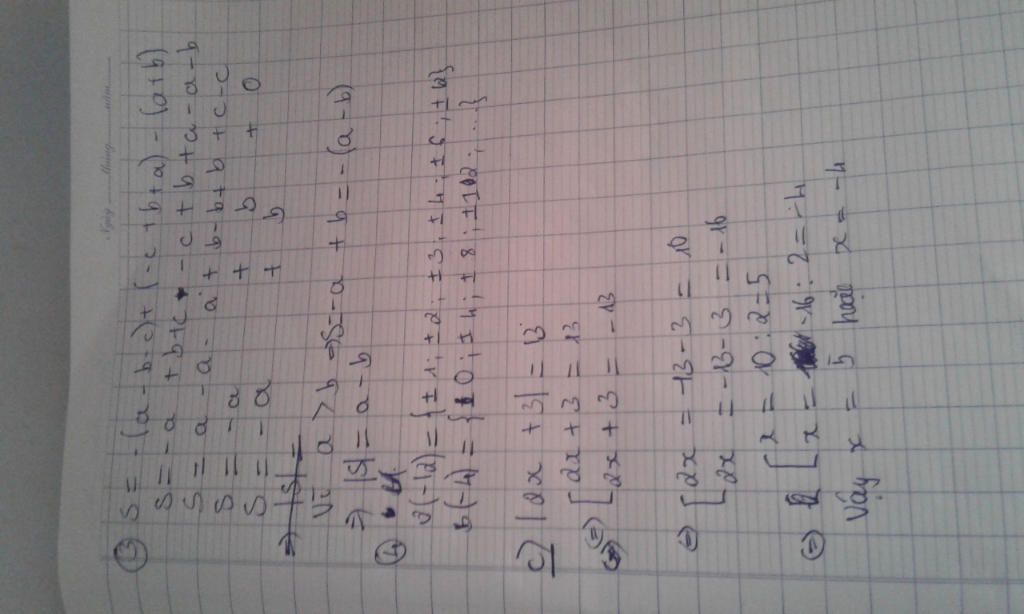 Ngày ........ tháng ........ năm ........
③ S = -(a-b-c)+(-c+b+a)-(a+b)
S = -a+b+c-c+b+a-a-b
S = a-a-a+b-b+b+c-c
S = -a + b + 0
S = -a + b
⇒ |S| =
Vì a > b ⇒ S = -a + b = -(a-b)
⇒ |S| = a-b
④
Ư(-12) = {±1; ±2; ±3; ±4; ±6; ±12}
b(-4) = {0; ±4; ±8; ±12; ...}
c) |2x + 3| = 13
⇔ [ 2x + 3 = 13
2x + 3 = -13
⇔ [ 2x = 13-3 = 10
2x = -13-3 = -16
⇔ [ x = 10 : 2 = 5
x = -16 : 2 = -4
Vậy x = 5 hoặc x = -4